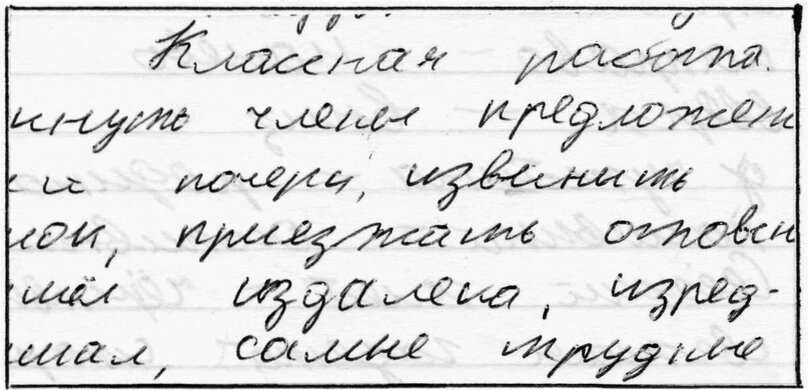 Классная работа.
инуть члены предложен
почерк, извинить
приезжать отовсю
издалека, изред-
самые трудные